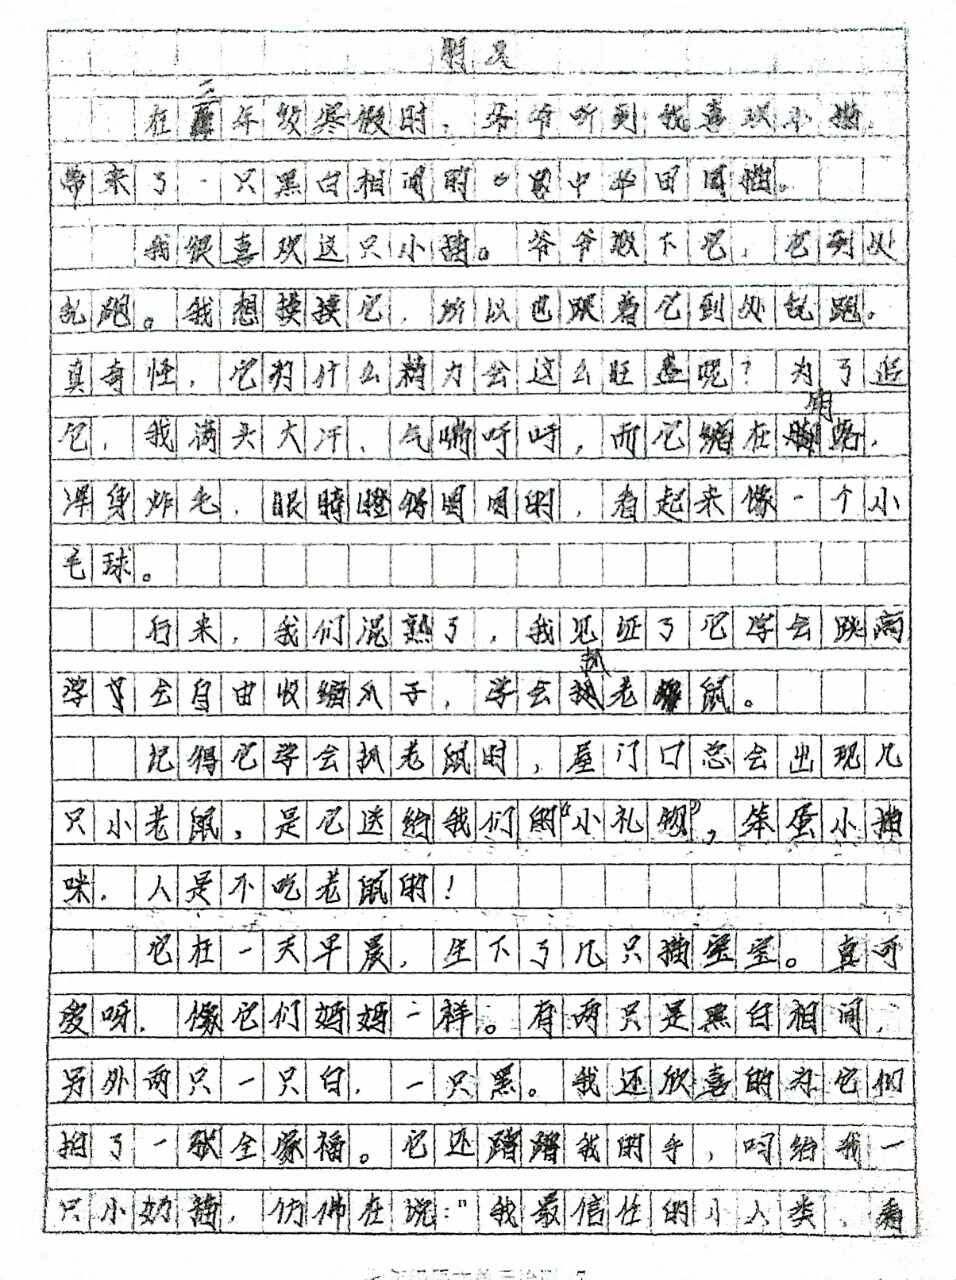 在二年级寒假时，爷爷听到我喜欢小猫，
带来了一只黑白相间的中华田园猫。
我很喜欢这只小猫。爷爷放下它，它到处
乱跑。我想摸摸它，所以也跟着它到处乱跑。
真奇怪，它为什么精力会这么旺盛呢？为了追
它，我满头大汗，气喘吁吁，而它缩在角落，
浑身炸毛，眼睛瞪得圆圆的，看起来像一个小
毛球。
后来，我们混熟了，我见证了它学会跳高
学会自由收缩爪子，学会扒老鼠。
记得它学会扒老鼠时，屋门口总会出现几
只小老鼠，是它送给我们的“小礼物”，笨蛋小猫
咪，人是不吃老鼠的！
它在一天早晨，生下了几只猫宝宝。真可
爱呀，像它们妈妈一样。有两只是黑白相间，
另外两只一只白，一只黑。我还欣喜的为它们
拍了一张全家福。它还蹭蹭我的手，叼给我一
只小奶猫，仿佛在说：“我最信任的小人类，看